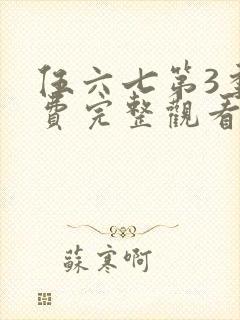 伍六七第3季
費完整觀看
蘇寒啊